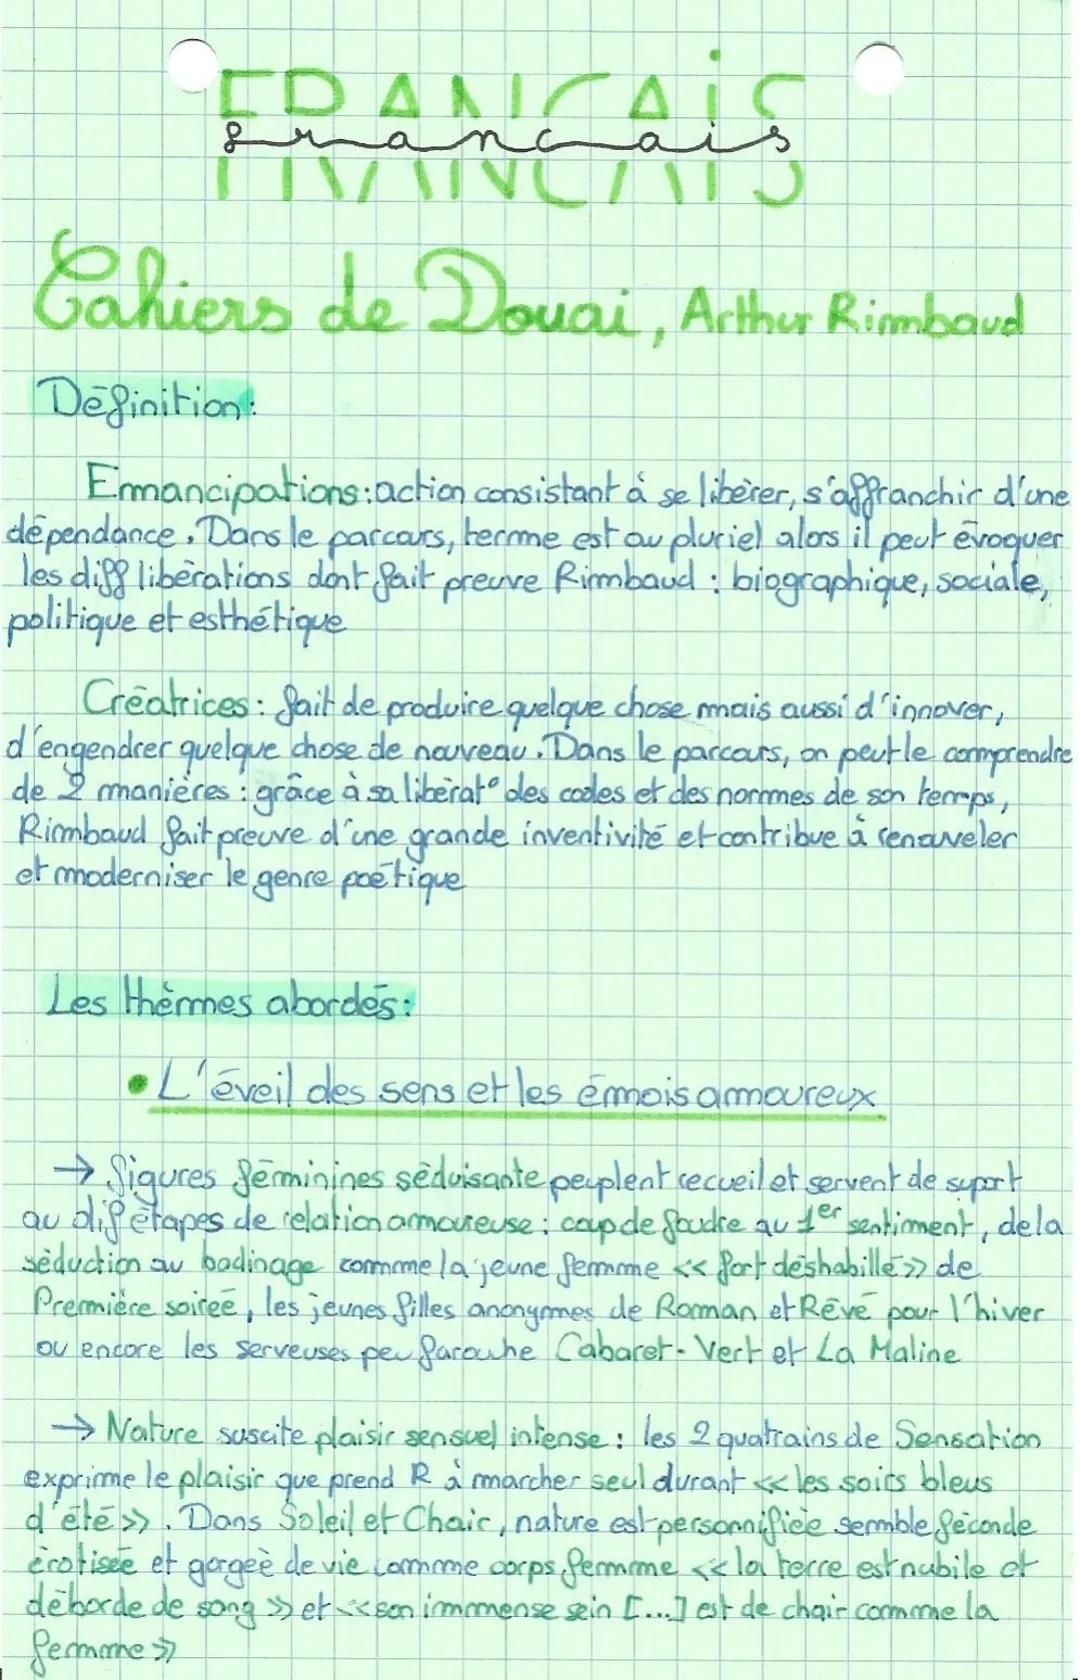 FRANÇAIS
français
Cahiers de Douai, Arthur Rimbaud
Définition:
Emancipations: action consistant à se libérer, s'affranchir d'une
dépendance. Dans le parcours, terme est au pluriel alors il peut évoquer
les diff libérations dont fait preuve Rimbaud : biographique, sociale,
politique et esthétique
Créatrices : fait de produire quelque chose mais aussi d'innover,
d'engendrer quelque chose de nouveau. Dans le parcours, on peut le comprendre
de 2 manières : grâce à sa libérat° des codes et des normes de son temps,
Rimbaud fait preuve d'une grande inventivité et contribue à renouveler
et moderniser le genre poétique
Les thèmes abordés:
• L'éveil des sens et les émois amoureux
→ figures féminines séduisante peuplent recueil et servent de suport
au dif étapes de relation amoureuse : coup de foudre au 1er sentiment, de la
séduction au badinage comme la jeune femme << fort déshabillé >> de
Première soirée, les jeunes filles anonymes de Roman et Rêvé pour l'hiver
ou encore les serveuses peu farouche Cabaret-Vert et La Maline
→ Nature suscite plaisir sensuel intense : les 2 quatrains de Sensation
exprime le plaisir que prend R à marcher seul durant << les soirs bleus
d'été >>. Dans Soleil et Chair, nature est personnifiée semble féconde
érotisée et gorgée de vie comme corps femme << la terre est nubile et
déborde de sang >> et << son immense sein [...] est de chair comme la
femme >>